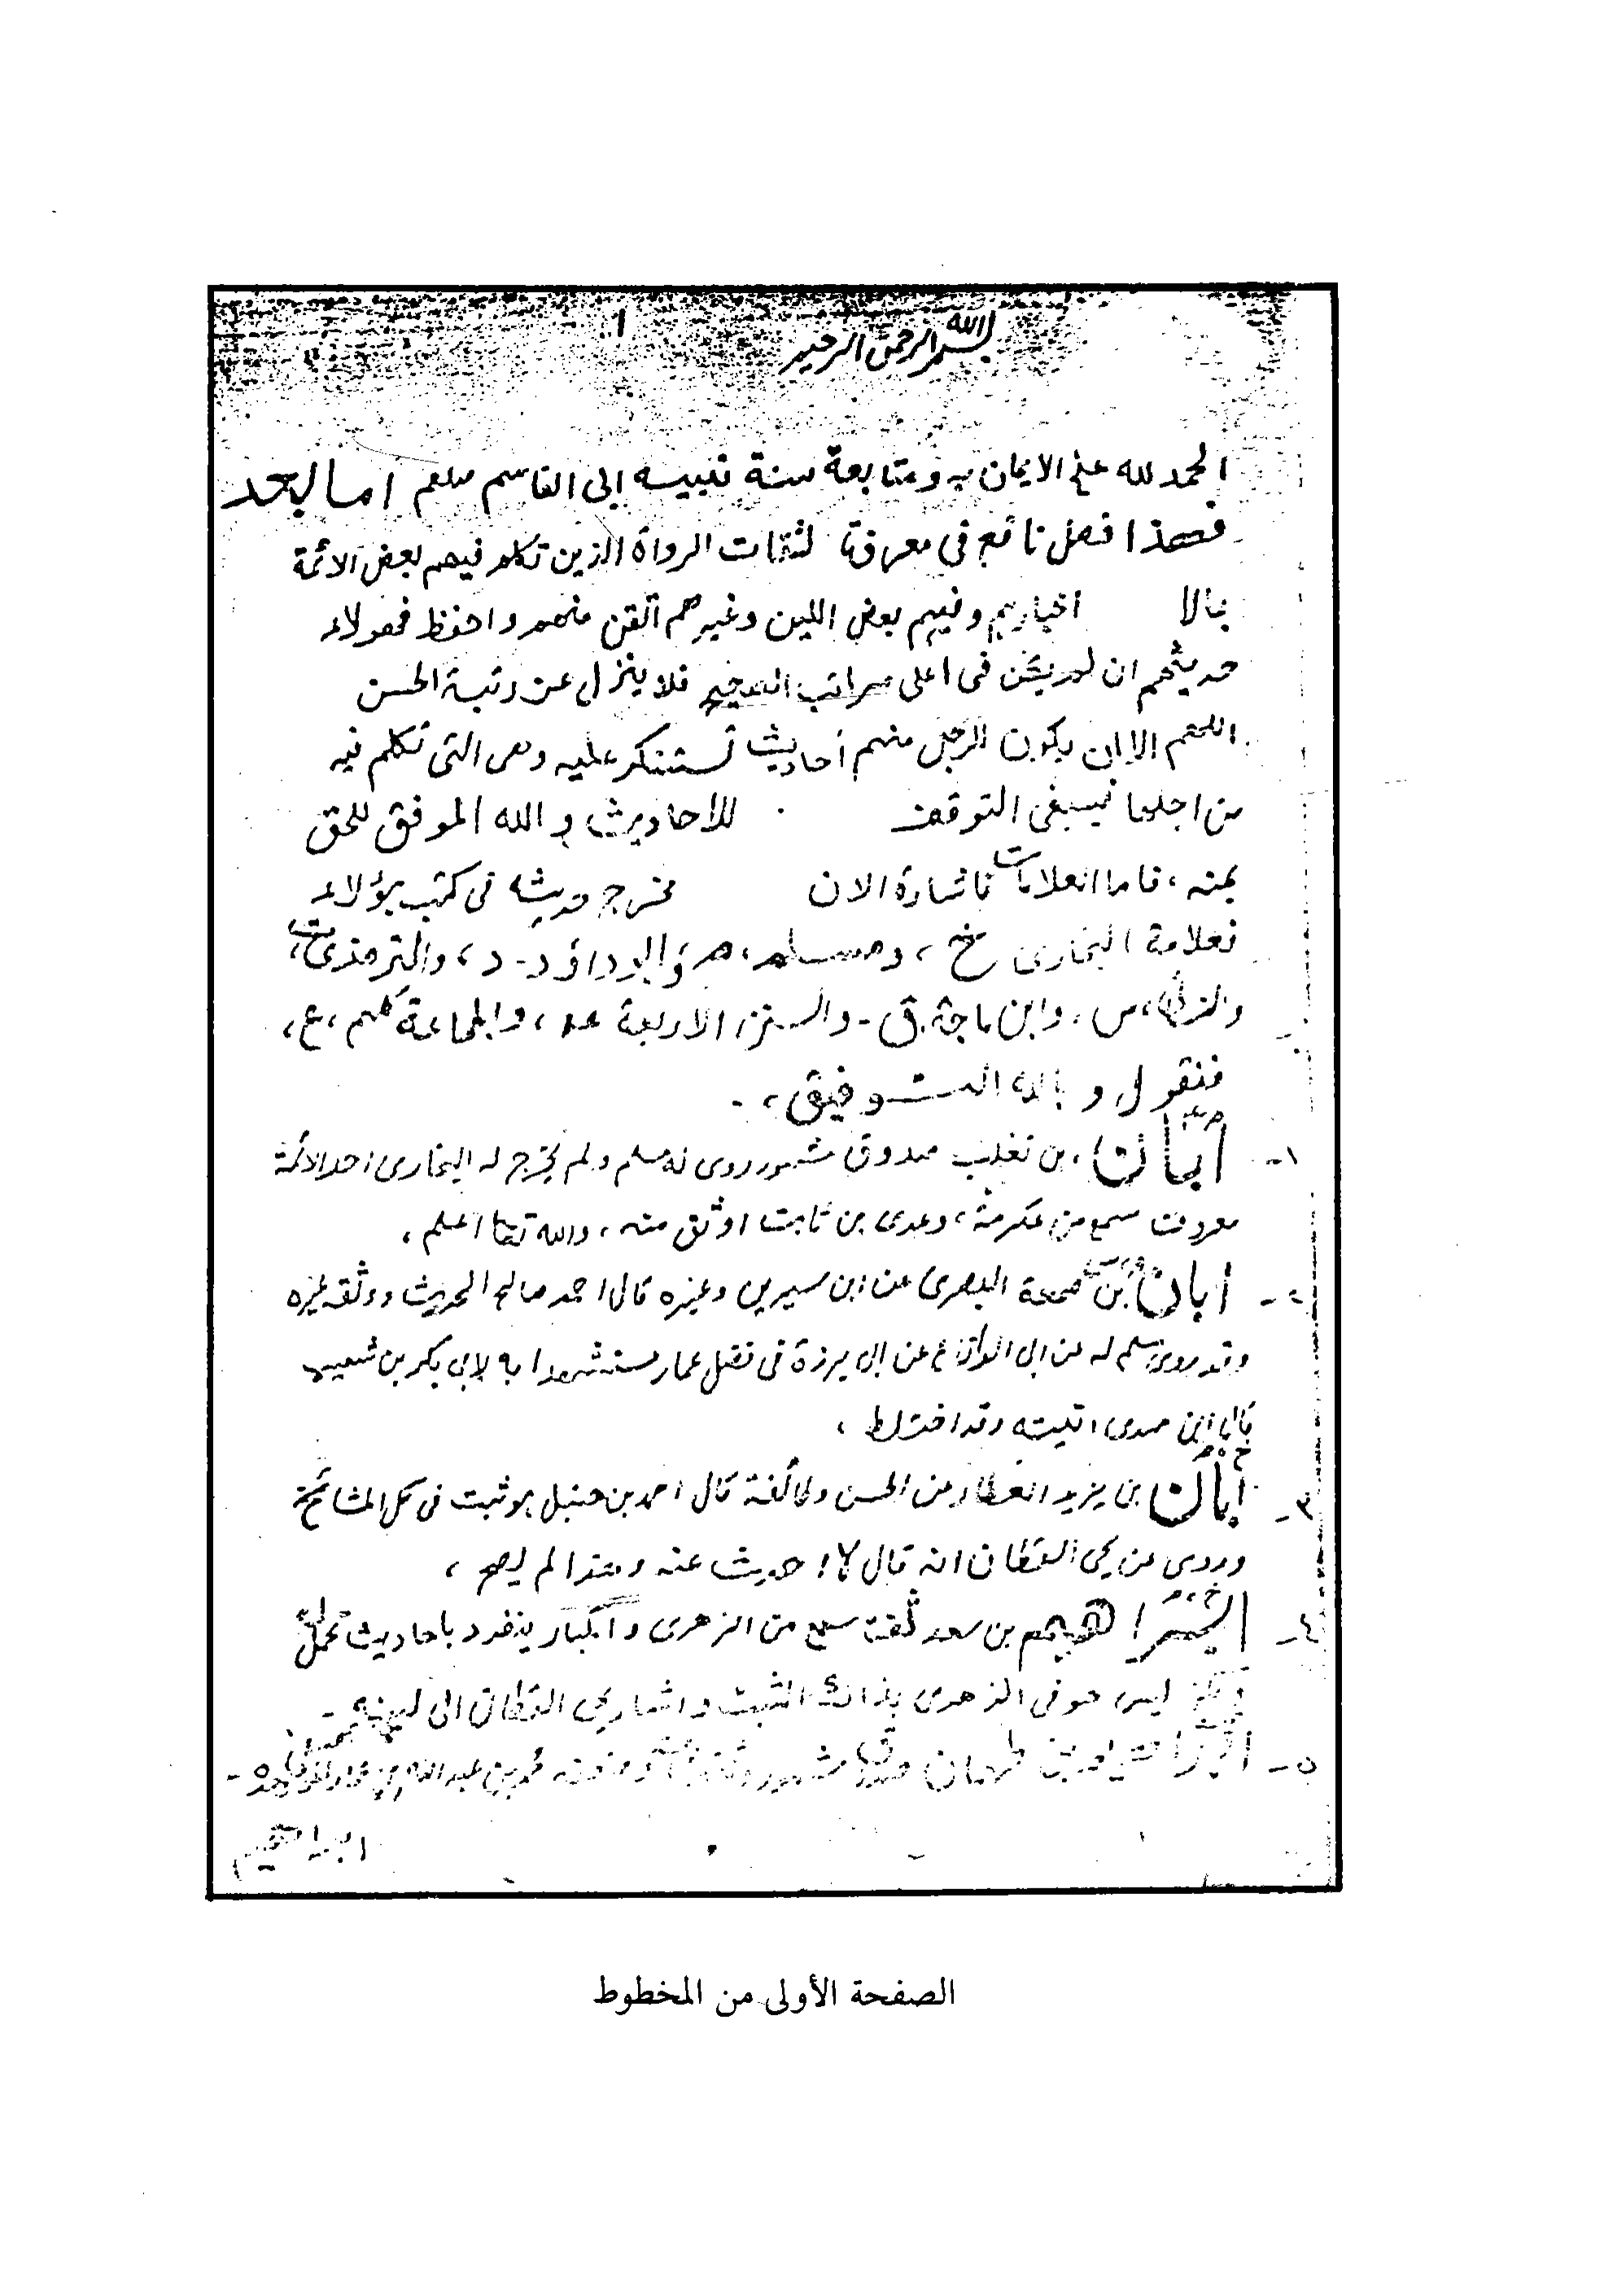 ١
بسم الله الرحمن الرحيم
الحمد لله على الايمان به ومتابعة سنة نبيه ابى القاسم صلعم اما بعد
فهذا فصل نافع فى معرفة ثقات الرواة الذين تكلم فيهم بعض الائمة
بالا اخبارهم وفيهم بعض اللين وغيرهم اتقن منهم واحفظ فهولاء
حديثهم ان لم يكن فى اعلى مراتب الصحيح فلا ينزل عن رتبة الحسن
اللهم الا ان يكون للرجل منهم أحاديث تستنكر عليه وهى التى تكلم فيه
من اجلها فينبغى التوقف للاحاديث والله الموفق للحق
بمنه، فاما العلامات فاشارة الان مخرج حديثه فى كتب هؤلاء
فعلامة البخارى خ، ومسلم، م، وابو داؤد - د، والترمذى، ت،
والنسائى، س، وابن ماجة ق - والسنن الاربعة عه، والجماعة كلهم، ع،
فنقول وبالله التوفيق، -
١- أبان، بن تغلب صدوق مشهور روى له مسلم ولم يخرج له البخارى احد الائمة
معروف سمع من عكرمة، وعدى بن ثابت اوثق منه، والله تعا اعلم،
٢- ابان بن صمعة البصرى عن ابن سيرين وغيره قال احمد صالح الحديث ووثقه غيره
وقد روى مسلم له عن ابى الوازع عن ابى برزة فى فضل عمار مستشهدا به لابى بكر بن شعيب
قال ابن مهدى اتيته وقد اختلط،
٣- أبان بن يزيد العطار عن الحسن وطائفة قال احمد بن حنبل هو ثبت فى كل المشائخ
وروى عن يحى القطان انه قال لا احديث عنه وهذا لم يصح،
٤- ابراهيم بن سعد ثقة سمع من الزهرى والكبار ينفرد باحاديث تحمل له
ليس هو فى الزهرى بذاك الثبت واشار يحى القطان الى لينه -
٥- ابراهيم بن طهمان مشهور محمد بن عبد الله بن عمار
ابراهيم
الصفحة الأولى من المخطوط